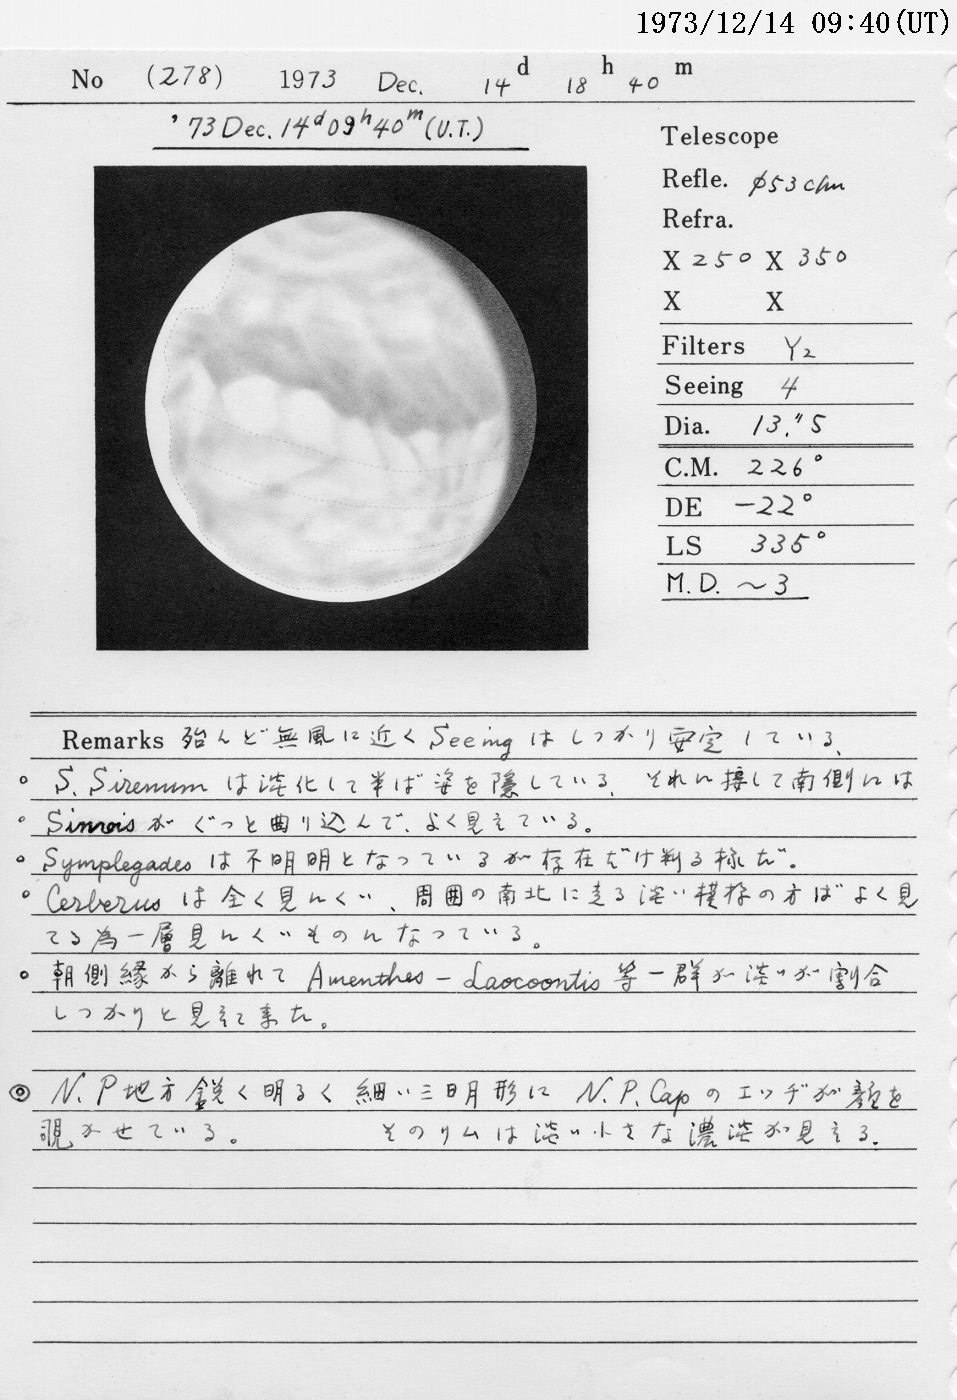 1973/12/14 09:40(UT)
No (278) 1973 Dec. 14 d 18 h 40 m
'73 Dec. 14d 09h 40m (U.T.)
Telescope
Refle. φ53cm
Refra.
X 250 X 350
X X
Filters Y2
Seeing 4
Dia. 13."5
C.M. 226°
DE -22°
LS 335°
M.D. ~3
Remarks 殆んど無風に近く Seeing はしっかり安定している、
○ S. Sirenum は淡化して半ば姿を隠している、それに接して南側には
○ Simois が ぐっと曲り込んで、よく見えている。
○ Symplegades は不明明となっているが存在だけ判る様だ。
○ Cerberus は全く見にくい、周囲の南北に走る淡い模様の方がよく見
てる為一層見にくいものになっている。
○ 朝側縁から離れて Amenthes - Laocoontis 等一群が淡いが割合
しっかりと見えて来た。
◎ N.P地方鋭く明るく 細い三日月形に N.P.Cap のエッヂが顔を
覗かせている。 そのリムは淡い小さな濃淡が見える.